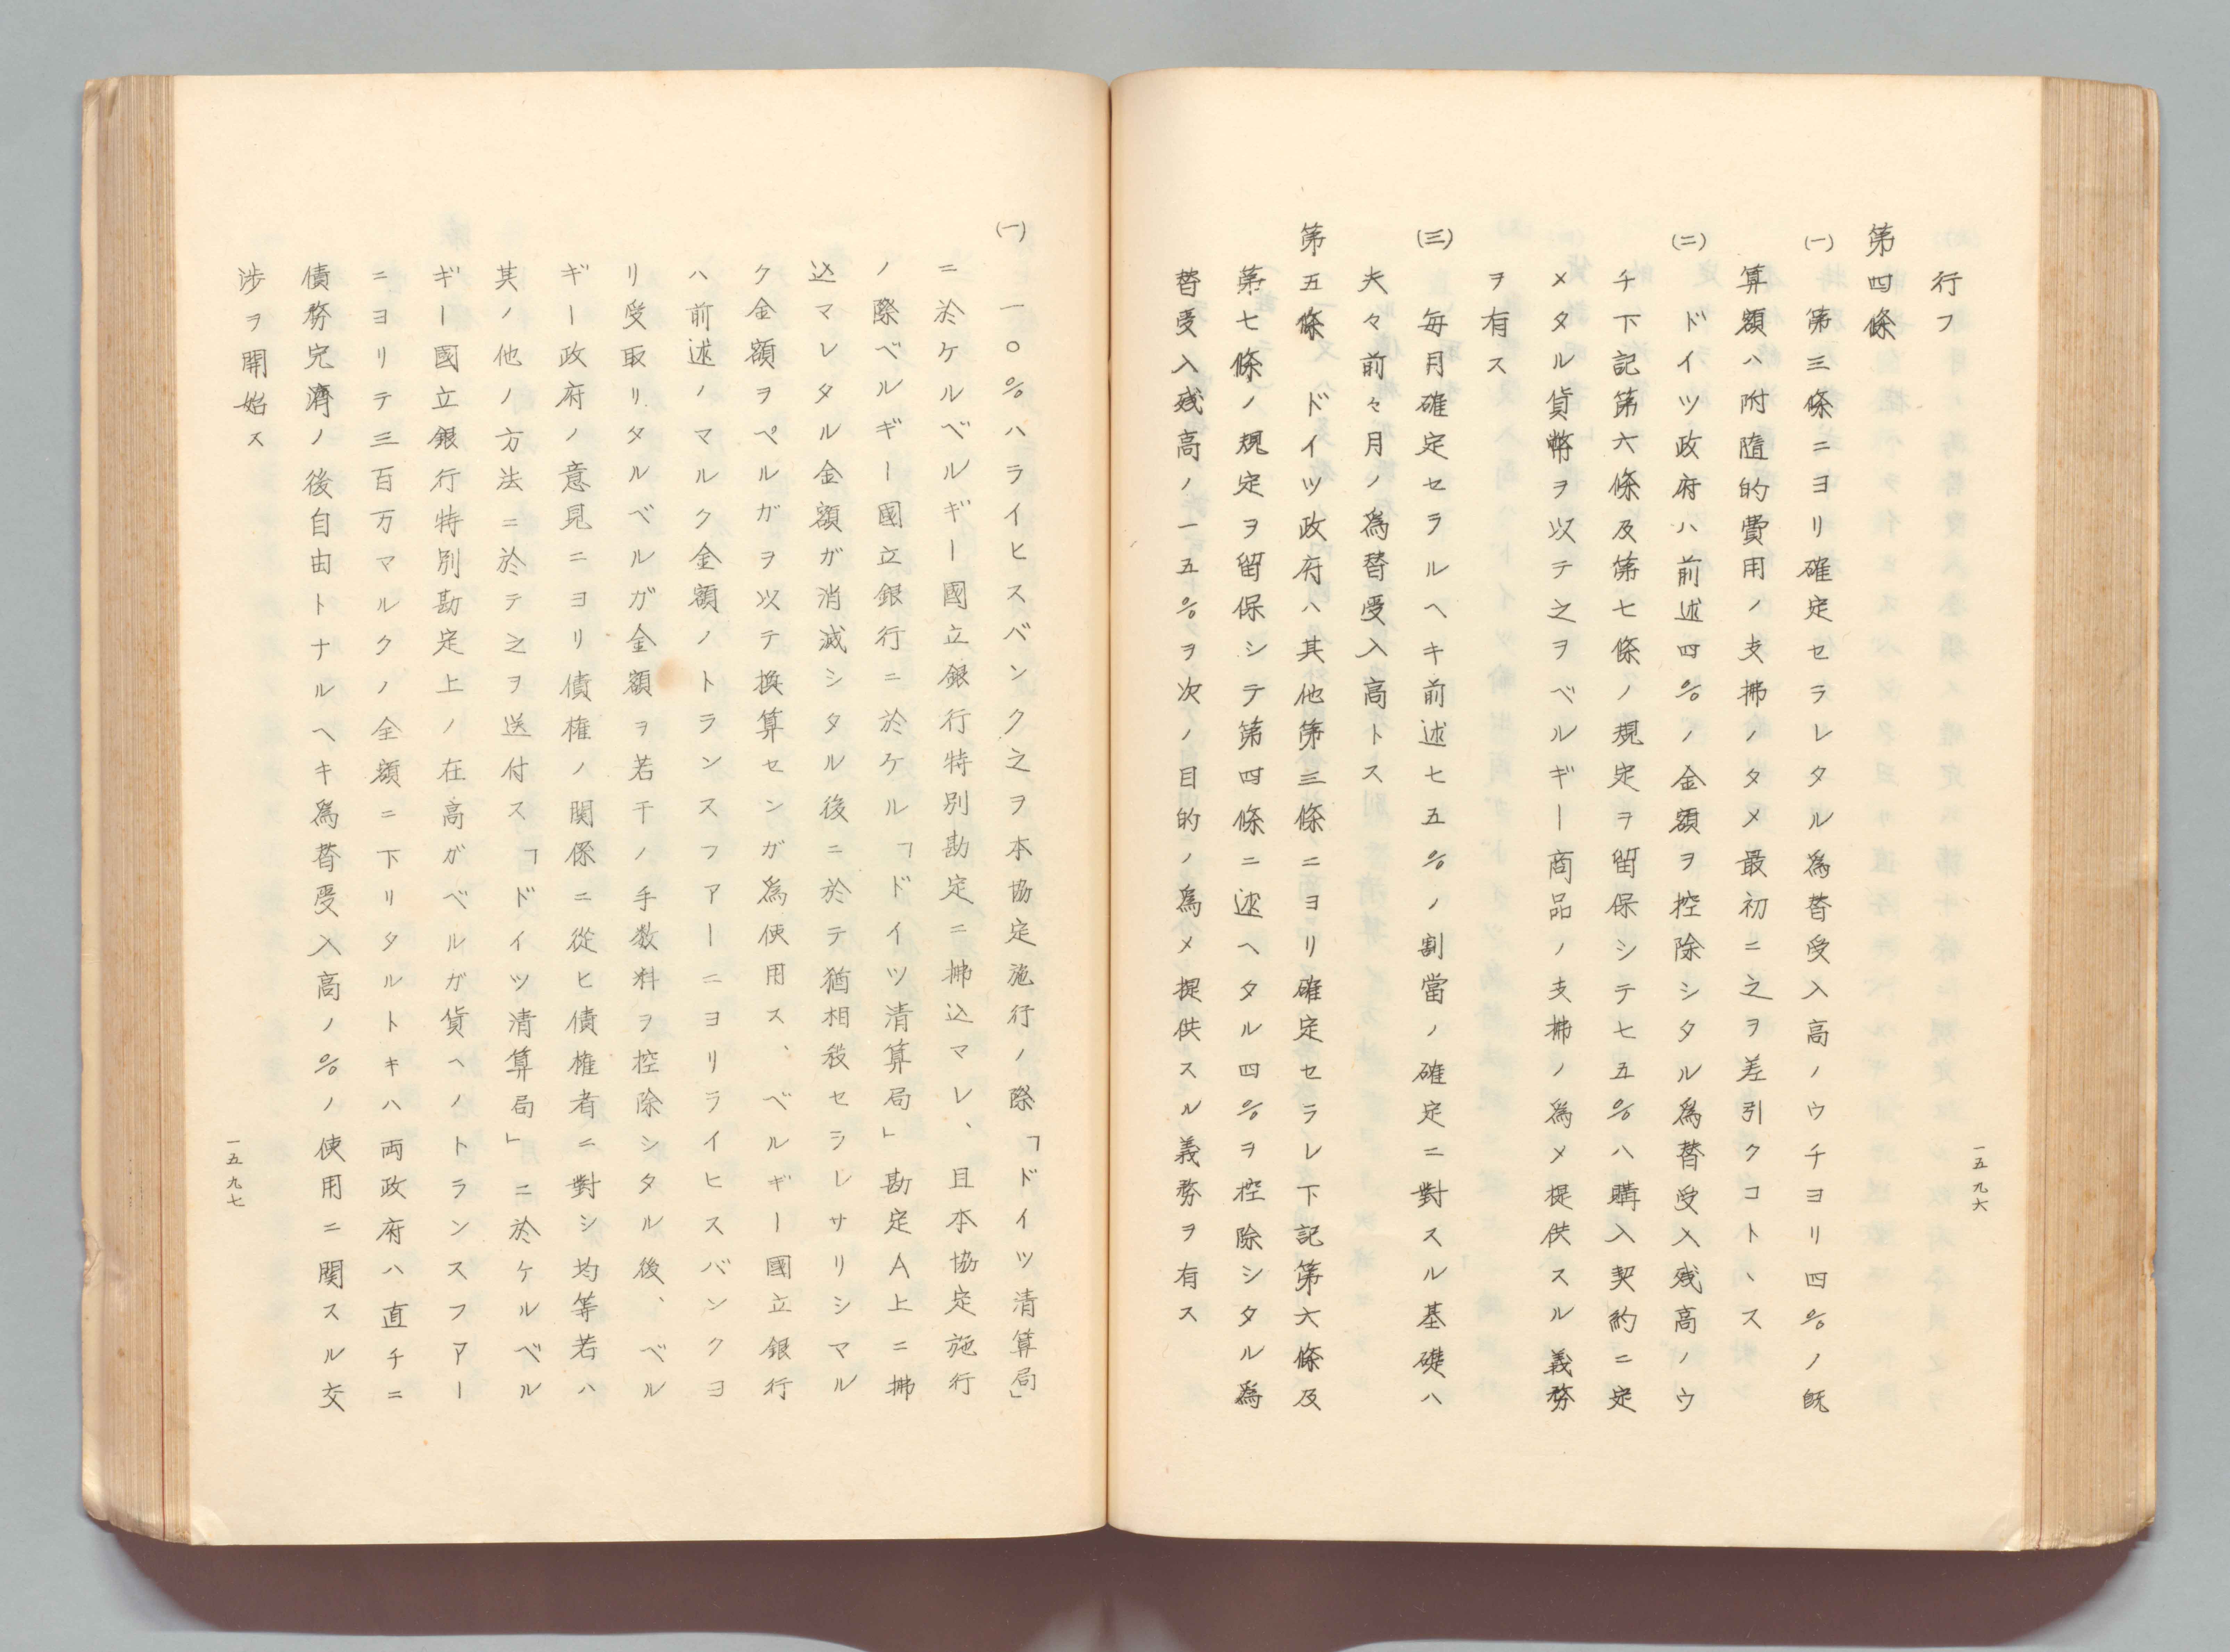 行フ
第四條
(一) 第三條ニヨリ確定セラレタル為替受入高ノウチヨリ四%ノ既
算額ハ附随的費用ノ支拂ノタメ最初ニ之ヲ差引クコトヽス
(二) ドイツ政府ハ前述四%ノ金額ヲ控除シタル為替受入残高ノウ
チ下記第六條及第七條ノ規定ヲ留保シテ七五%ハ購入契約ニ定
メタル貨幣ヲ以テ之ヲベルギー商品ノ支拂ノ為メ提供スル義務
ヲ有ス
(三) 毎月確定セラルヘキ前述七五%ノ割當ノ確定ニ對スル基礎ハ
夫々前々月ノ為替受入高トス
第五條 ドイツ政府ハ其他第三條ニヨリ確定セラレ下記第六條及
第七條ノ規定ヲ留保シテ第四條ニ述ヘタル四%ヲ控除シタル為
替受入残高ノ一五%ヲ次ノ目的ノ為メ提供スル義務ヲ有ス
一五九六
(一) 一〇%ハライヒスバンク之ヲ本協定施行ノ際「ドイツ清算局」
ニ於ケルベルギー國立銀行特別勘定ニ拂込マレ、且本協定施行
ノ際ベルギー國立銀行ニ於ケル「ドイツ清算局」勘定A上ニ拂
込マレタル金額ガ消滅シタル後ニ於テ猶相殺セラレサリシマル
ク金額ヲペルガヲ以テ換算センガ為使用ス、ベルギー國立銀行
ハ前述ノマルク金額ノトランスフアーニヨリライヒスバンクヨ
リ受取リタルベルガ金額ヲ若干ノ手数料ヲ控除シタル後、ベル
ギー政府ノ意見ニヨリ債権ノ関係ニ從ヒ債権者ニ對シ均等若ハ
其ノ他ノ方法ニ於テ之ヲ送付ス「ドイツ清算局」ニ於ケルベル
ギー國立銀行特別勘定上ノ在高ガベルガ貨ヘノトランスフアー
ニヨリテ三百万マルクノ全額ニ下リタルトキハ両政府ハ直チニ
債務完濟ノ後自由トナルヘキ為替受入高ノ%ノ使用ニ関スル交
渉ヲ開始ス
一五九七